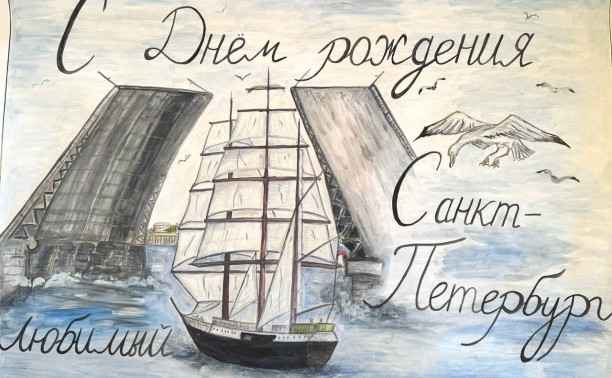 С Днём рождения
Санкт-
Петербург
Любимый